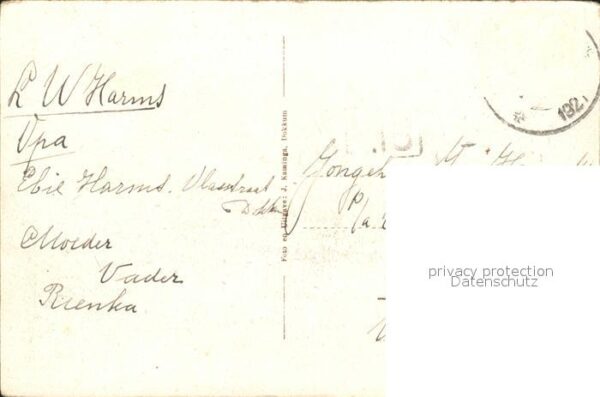 L W Harms
Opa
Ebie Harms. Vlasstraat
Dokkum
Moeder
Vader
Rienka
Foto en Uitgave: J. Kamminga, Dokkum
192
Jonge
P/a
privacy protection
Datenschutz